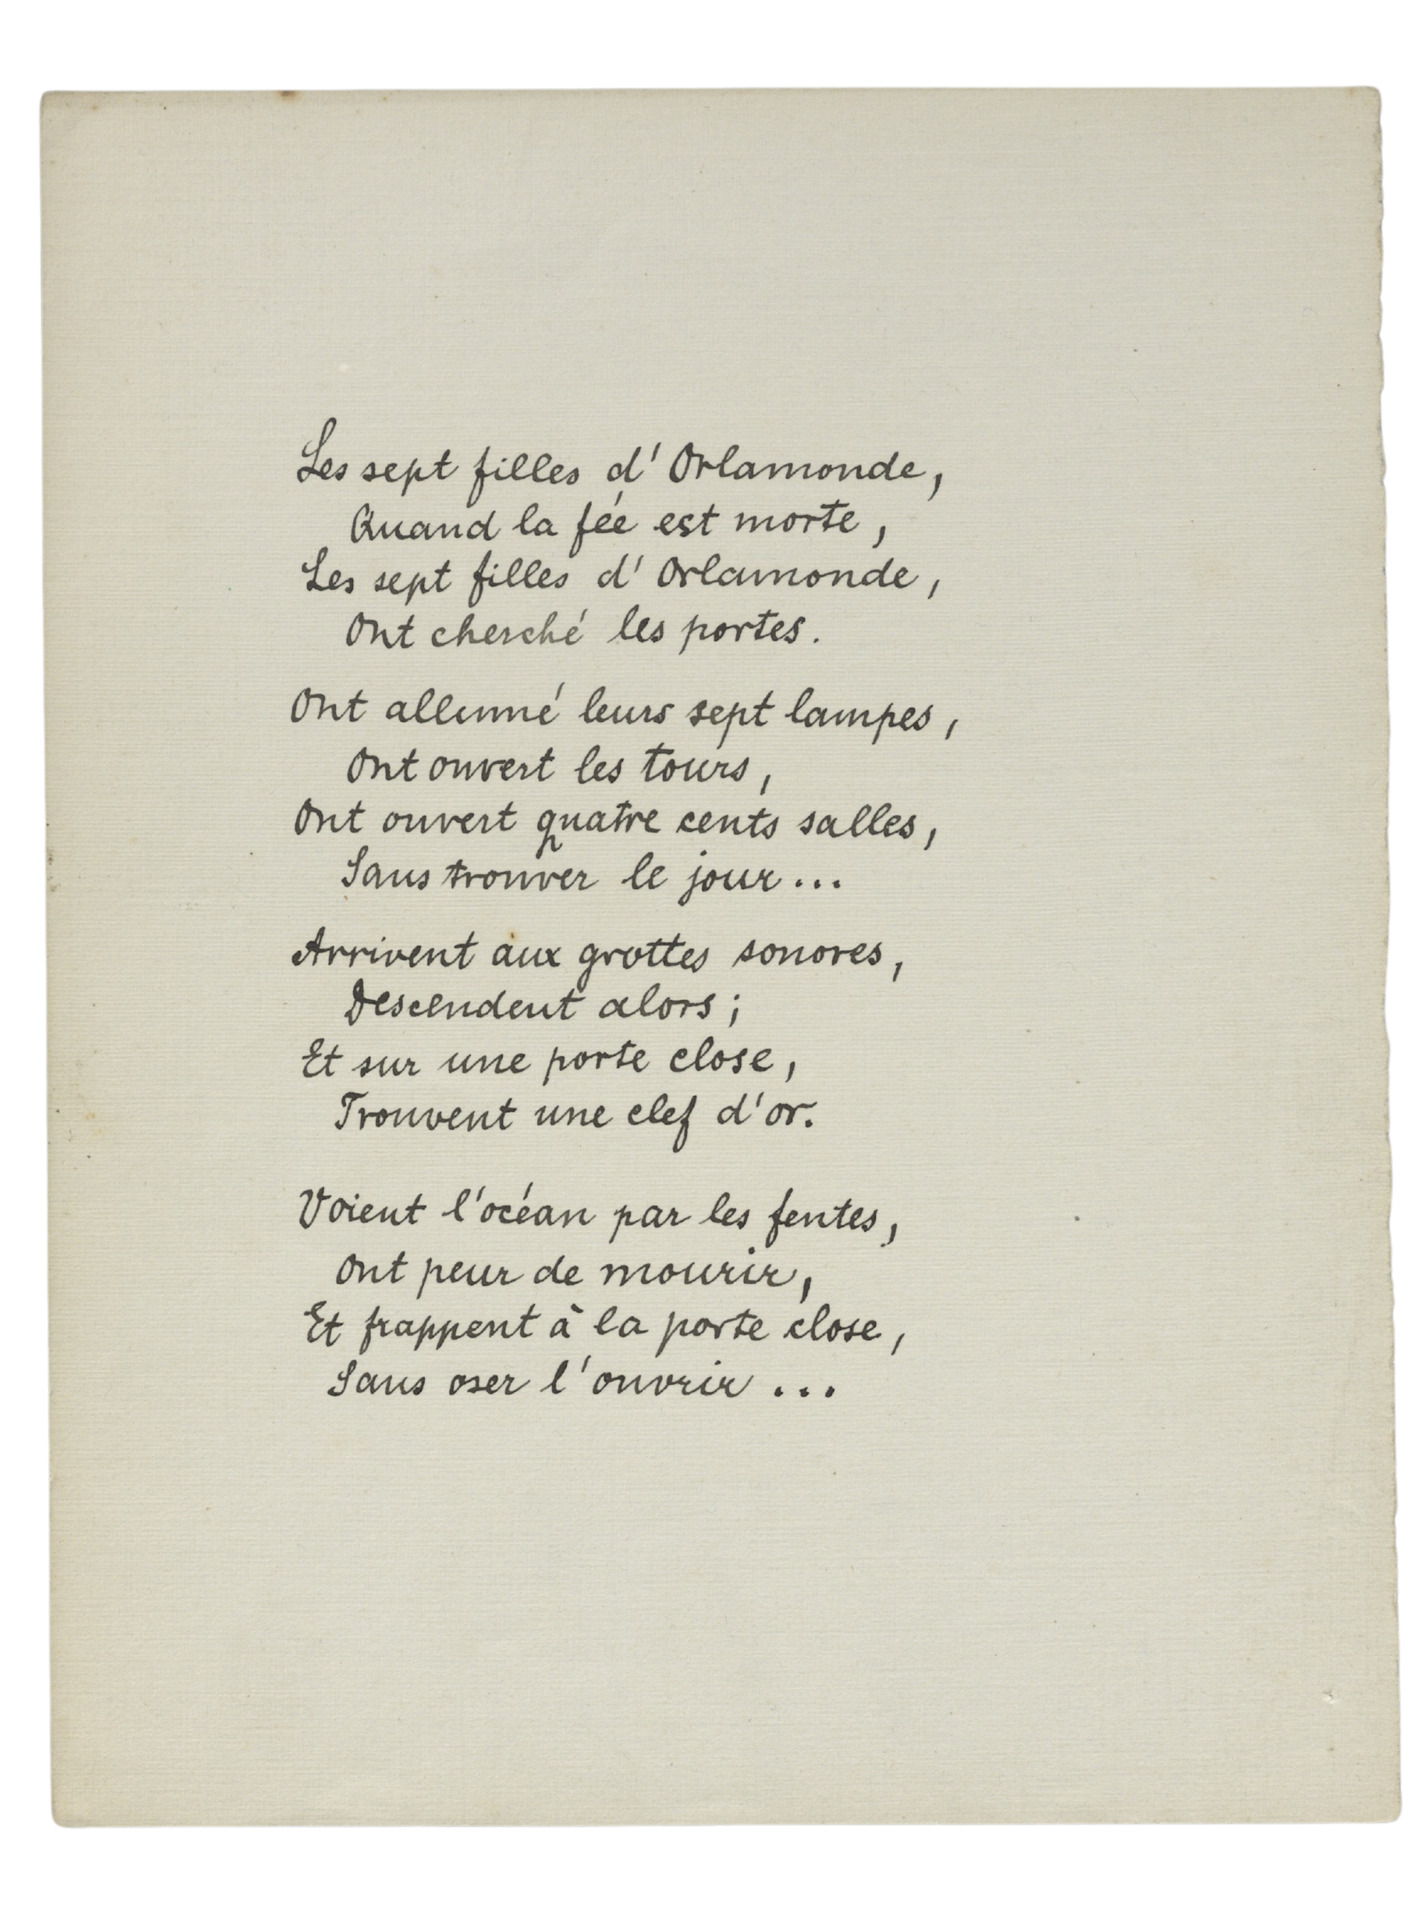 Les sept filles d'Orlamonde,
Quand la fée est morte,
Les sept filles d'Orlamonde,
Ont cherché les portes.
Ont allumé leurs sept lampes,
Ont ouvert les tours,
Ont ouvert quatre cents salles,
Sans trouver le jour...
Arrivent aux grottes sonores,
Descendent alors ;
Et sur une porte close,
Trouvent une clef d'or.
Voient l'océan par les fentes,
Ont peur de mourir,
Et frappent à la porte close,
Sans oser l'ouvrir...